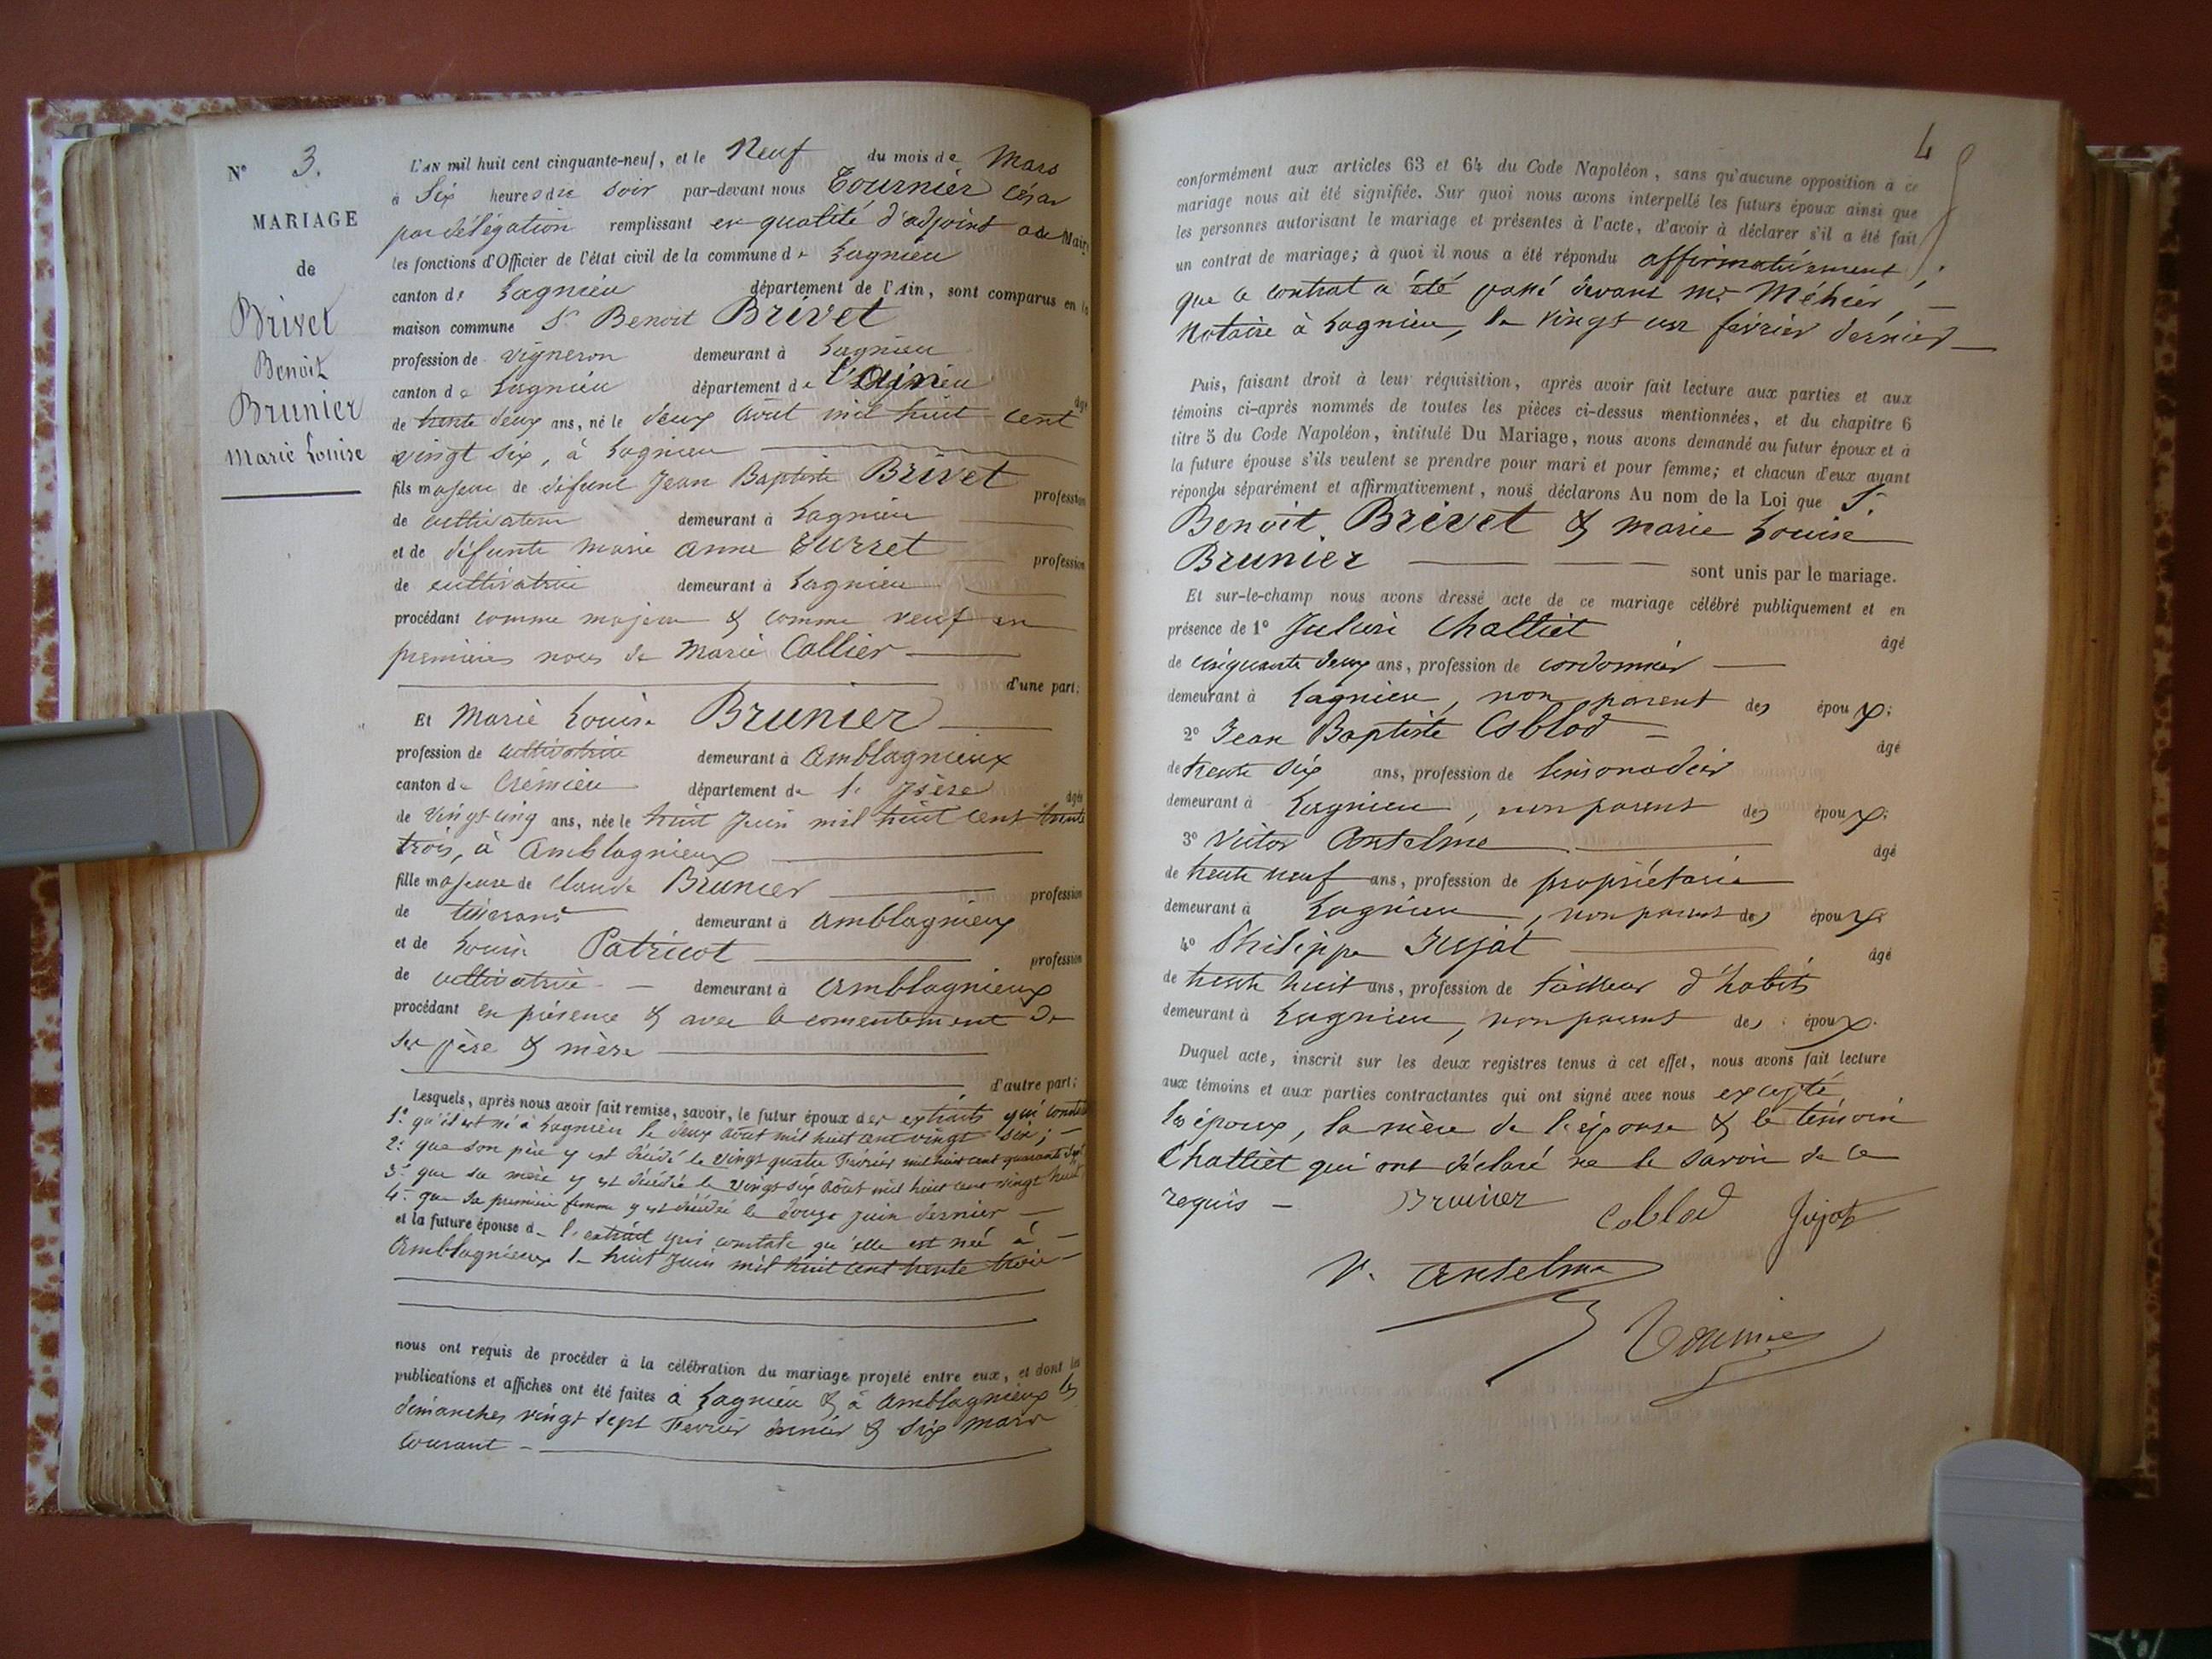 N° 3.
MARIAGE
de
Brivet
Benoit
Brunier
Marie Louise
L'AN mil huit cent cinquante-neuf, et le Neuf du mois de Mars
à Six heures du soir par-devant nous Tournier César
par délégation remplissant en qualité d'adjoint au Maire
les fonctions d'Officier de l'état civil de la commune de Lagnieu
canton de Lagnieu département de l'Ain, sont comparus en la
maison commune Sr Benoit Brivet
profession de vigneron demeurant à Lagnieu
canton de Lagnieu département de l'Ain âgé
de trente deux ans, né le deux août mil huit cent
vingt six, à Lagnieu
fils majeur de défunt Jean Baptiste Brivet profession
de cultivateur demeurant à Lagnieu
et de défunte Marie Anne profession
de cultivatrice demeurant à Lagnieu
procédant comme majeur & comme veuf en
premières noces de Marie Collier
d'une part;
Et Marie Louise Brunier
profession de cultivatrice demeurant à Amblagnieux
canton de Crémieu département de l'Isère âgée
de vingt-cinq ans, née le huit Juin mil huit cent trente
trois, à Amblagnieux
fille majeure de Claude Brunier profession
de tisserand demeurant à Amblagnieux
et de Louise Patricot profession
de cultivatrice demeurant à Amblagnieux
procédant en présence & avec le consentement de
ses père & mère
d'autre part;
Lesquels, après nous avoir fait remise, savoir, le futur époux des extraits qui constate
1° qu'il est né à Lagnieu le deux août mil huit cent vingt six;
2° que son père y est décédé le vingt quatre Février mil huit cent quarante sept
3° que sa mère y est décédée le vingt six août mil huit cent vingt huit
4° que sa première femme y est décédée le douze juin dernier
et la future épouse de l'extrait qui constate qu'elle est née à
Amblagnieux le huit Juin mil huit cent trente trois
nous ont requis de procéder à la célébration du mariage projeté entre eux, et dont les
publications et affiches ont été faites à Lagnieu & à Amblagnieux les
dimanches vingt sept Février dernier & six mars
courant
4
conformément aux articles 63 et 64 du Code Napoléon, sans qu'aucune opposition à ce
mariage nous ait été signifiée. Sur quoi nous avons interpellé les futurs époux ainsi que
les personnes autorisant le mariage et présentes à l'acte, d'avoir à déclarer s'il a été fait
un contrat de mariage; à quoi il nous a été répondu affirmativement,
que le contrat a été passé devant Me Méhier,
Notaire à Lagnieu, le vingt un février dernier
Puis, faisant droit à leur réquisition, après avoir fait lecture aux parties et aux
témoins ci-après nommés de toutes les pièces ci-dessus mentionnées, et du chapitre 6
titre 5 du Code Napoléon, intitulé Du Mariage, nous avons demandé au futur époux et à
la future épouse s'ils veulent se prendre pour mari et pour femme; et chacun d'eux ayant
répondu séparément et affirmativement, nous déclarons Au nom de la Loi que Sr
Benoit Brivet & Marie Louise
Brunier sont unis par le mariage.
Et sur-le-champ nous avons dressé acte de ce mariage célébré publiquement et en
présence de 1° Julien Challiet âgé
de cinquante deux ans, profession de cordonnier
demeurant à Lagnieu, non parent des époux;
2° Jean Baptiste Coblod âgé
de trente six ans, profession de limonadier
demeurant à Lagnieu, non parent des époux;
3° Victor Anselme âgé
de trente neuf ans, profession de propriétaire
demeurant à Lagnieu, non parent des époux;
4° Philippe Jujat âgé
de trente huit ans, profession de tailleur d'habits
demeurant à Lagnieu, non parent des époux.
Duquel acte, inscrit sur les deux registres tenus à cet effet, nous avons fait lecture
aux témoins et aux parties contractantes qui ont signé avec nous excepté
les époux, la mère de l'épouse & le témoin
Challiet qui ont déclaré ne le savoir de ce
requis
Brunier Coblod Jujat
V. Anselme
Tournier